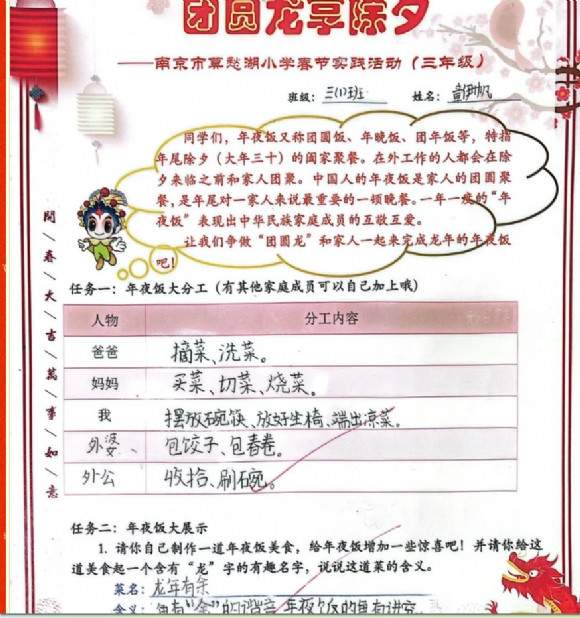 团圆龙享除夕
——南京市莫愁湖小学春节实践活动（三年级）
班级：三(1)班 姓名：童伊帆
同学们，年夜饭又称团圆饭、年晚饭、团年饭等，特指
年尾除夕（大年三十）的阖家聚餐。在外工作的人都会在除
夕来临之前和家人团聚。中国人的年夜饭是家人的团圆聚
餐，是年尾对一家人来说最重要的一顿晚餐。一年一度的“年
夜饭”表现出中华民族家庭成员的互敬互爱。
让我们争做“团圆龙”和家人一起来完成龙年的年夜饭
吧！
開春大吉萬事如意
任务一：年夜饭大分工（有其他家庭成员可以自己加上哦）
人物 分工内容
爸爸 摘菜、洗菜。
妈妈 买菜、切菜、烧菜。
我 摆放碗筷、放好坐椅、端出凉菜。
外婆、 包饺子、包春卷。
外公 收拾、刷碗。
任务二：年夜饭大展示
1. 请你自己制作一道年夜饭美食，给年夜饭增加一些惊喜吧！并请你给这
道美食起一个含有“龙”字的有趣名字，说说这道菜的含义。
菜名：龙年有余
含义：鱼有“余”的谐音，年夜饭的鱼有讲究，